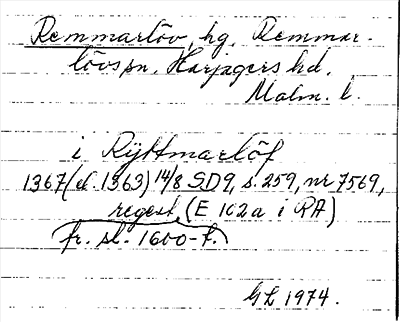 Remmarlöv, hg, Remmar-
lövs sn, Harjagers hd,
Malm. l.
i Ryttmarlöf
1367 (el. 1363) 14/8 SD9, s. 259, nr 7569,
regest, (E 102a i RA)
fr. sl. 1600-t.
GL 1974.